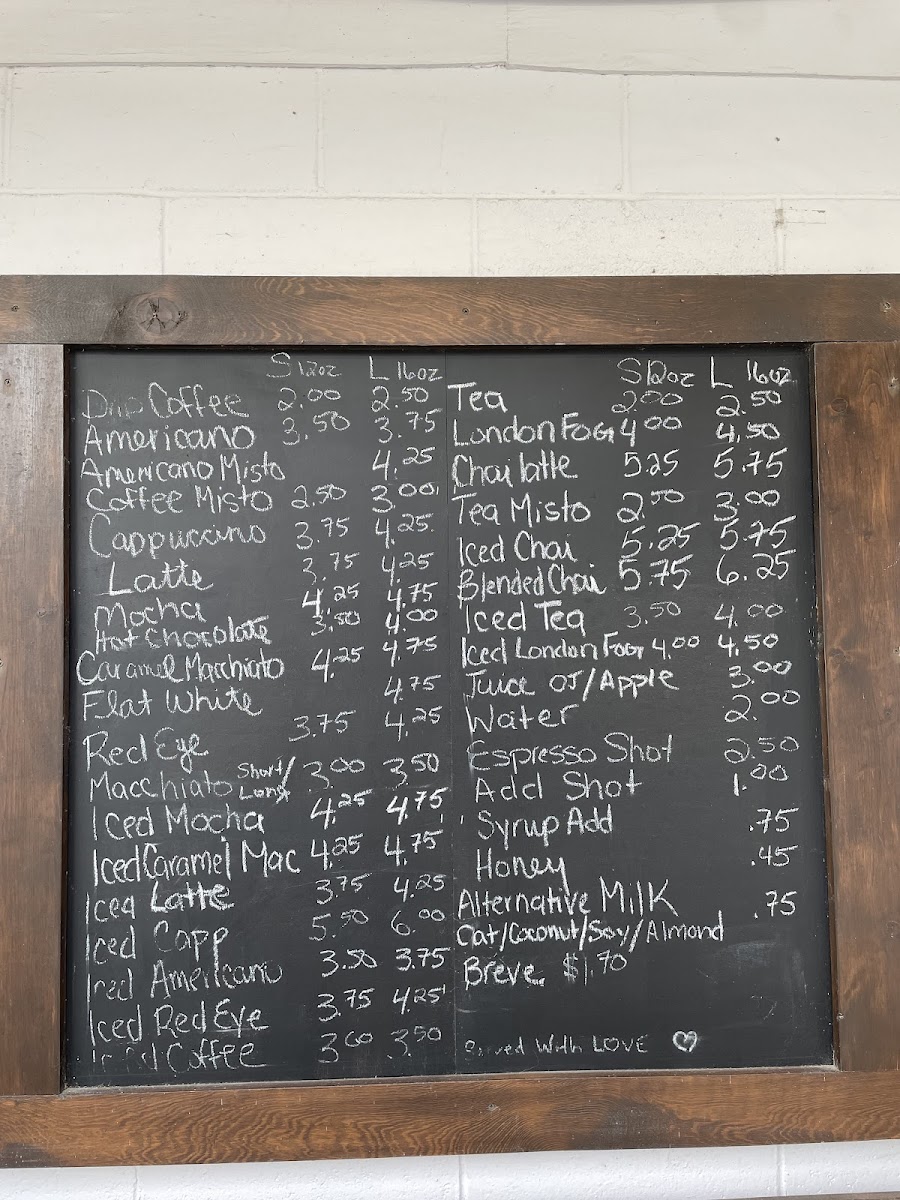 S 12oz L 16oz
Drip Coffee 2.00 2.50
Americano 3.50 3.75
Americano Misto 4.25
Coffee Misto 2.50 3.00
Cappuccino 3.75 4.25
Latte 3.75 4.25
Mocha 4.25 4.75
Hot Chocolate 3.50 4.00
Caramel Macchiato 4.25 4.75
Flat White 4.75
Red Eye 3.75 4.25
Macchiato Short/Long 3.00 3.50
Iced Mocha 4.25 4.75
Iced Caramel Mac 4.25 4.75
Iced Latte 3.75 4.25
Iced Capp 5.50 6.00
Iced Americano 3.50 3.75
Iced Red Eye 3.75 4.25
Coffee 3.50
S 12oz L 16oz
Tea 2.00 2.50
London Fog 4.00 4.50
Chai latte 5.25 5.75
Tea Misto 2.50 3.00
Iced Chai 5.25 5.75
Blended Chai 5.75 6.25
Iced Tea 3.50 4.00
Iced London Fog 4.00 4.50
Juice OJ/Apple 3.00
Water 2.00
Espresso Shot 2.50
Add Shot 1.00
Syrup Add .75
Honey .45
Alternative Milk .75
Oat/Coconut/Soy/Almond
Breve $1.70
Served With LOVE ♡